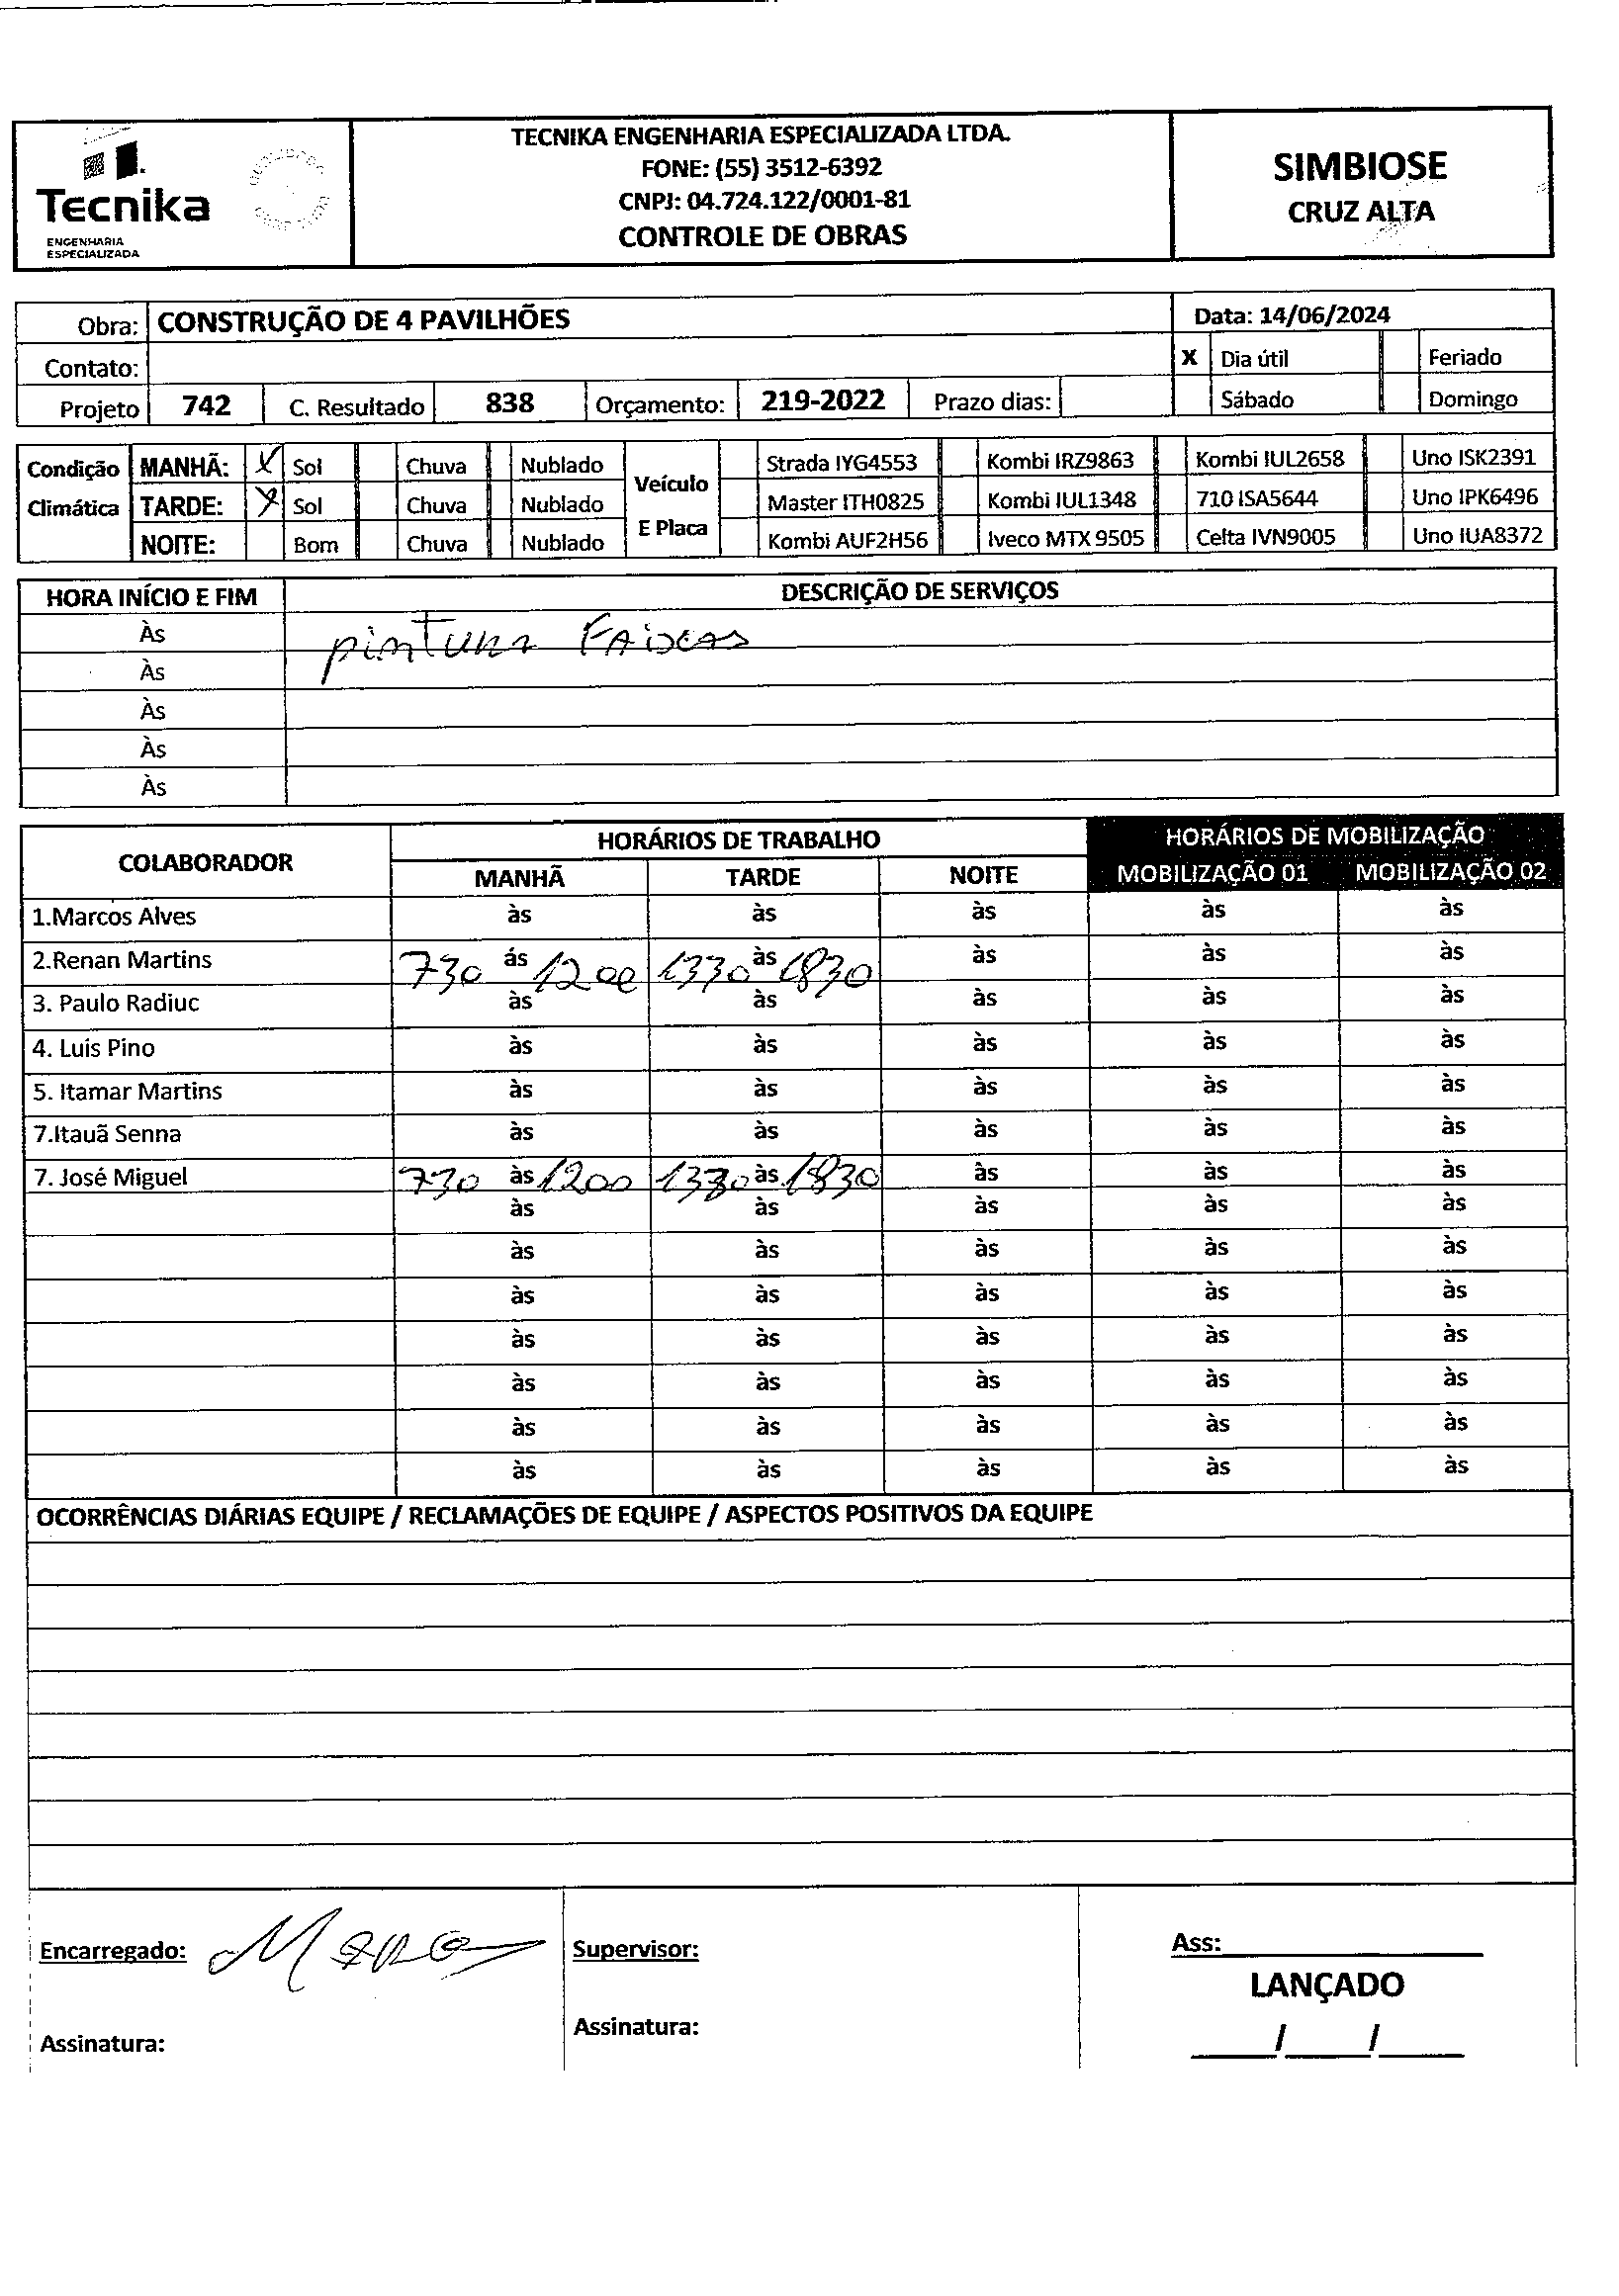 TECNIKA ENGENHARIA ESPECIALIZADA LTDA.
FONE: (55) 3512-6392
CNPJ: 04.724.122/0001-81
CONTROLE DE OBRAS
Tecnika
ENGENHARIA
ESPECIALIZADA
SIMBIOSE
CRUZ ALTA
Obra: CONSTRUÇÃO DE 4 PAVILHÕES Data: 14/06/2024
Contato: X Dia útil Feriado
Projeto 742 C. Resultado 838 Orçamento: 219-2022 Prazo dias: Sábado Domingo
Condição MANHÃ: X Sol Chuva Nublado Veículo Strada IYG4553 Kombi IRZ9863 Kombi IUL2658 Uno ISK2391
Climática TARDE: X Sol Chuva Nublado Master ITH0825 Kombi IUL1348 710 ISA5644 Uno IPK6496
NOITE: Bom Chuva Nublado E Placa Kombi AUF2H56 Iveco MTX 9505 Celta IVN9005 Uno IUA8372
HORA INÍCIO E FIM DESCRIÇÃO DE SERVIÇOS
Às pintura
Às
Às
Às
Às
COLABORADOR HORÁRIOS DE TRABALHO HORÁRIOS DE MOBILIZAÇÃO
MANHÃ TARDE NOITE MOBILIZAÇÃO 01 MOBILIZAÇÃO 02
1.Marcos Alves às às às às às
2.Renan Martins 730 ás 1200 1330 às 1830 às às às
3. Paulo Radiuc às às às às às
4. Luis Pino às às às às às
5. Itamar Martins às às às às às
7.Itauã Senna às às às às às
7. José Miguel 730 às 1200 1330 às 1830 às às às
às às às às às
às às às às às
às às às às às
às às às às às
às às às às às
às às às às às
às às às às às
OCORRÊNCIAS DIÁRIAS EQUIPE / RECLAMAÇÕES DE EQUIPE / ASPECTOS POSITIVOS DA EQUIPE
Encarregado: Supervisor: Ass:
LANÇADO
Assinatura: Assinatura: ____/____/____